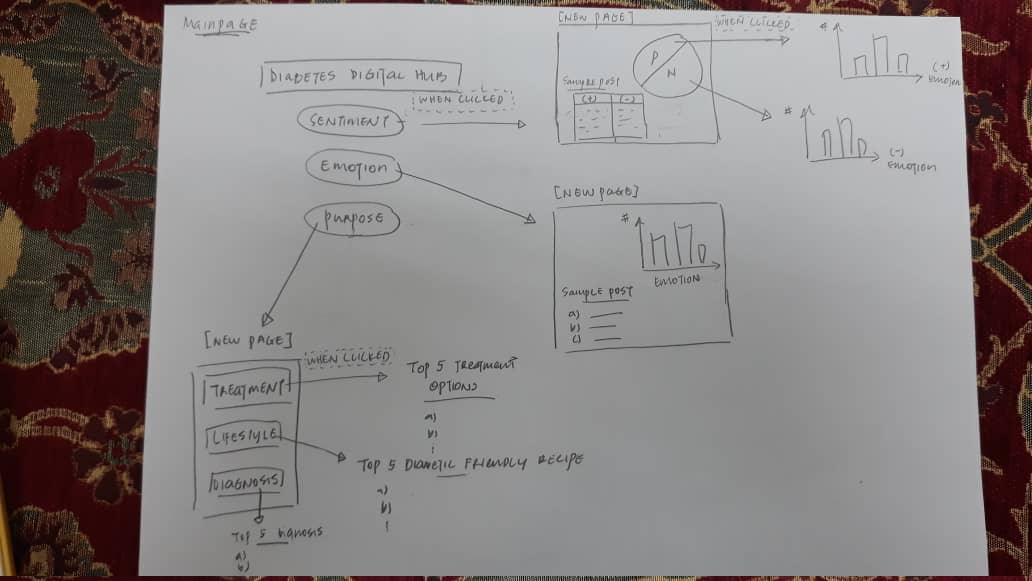 Mainpage
DIABETES DIGITAL HUB
SENTIMENT
WHEN CLICKED
EMOTION
PURPOSE
[NEW PAGE]
WHEN CLICKED
P
N
SAMPLE POST
(+) (-)
#
(+)
EMOTION
#
(-)
EMOTION
[NEW PAGE]
#
EMOTION
SAMPLE POST
a)
b)
c)
[NEW PAGE]
TREATMENT
WHEN CLICKED
LIFESTYLE
DIAGNOSIS
TOP 5 TREATMENT
OPTIONS
a)
b)
TOP 5 DIABETIC FRIENDLY RECIPE
a)
b)
TOP 5 DIGNOSIS
a)
b)